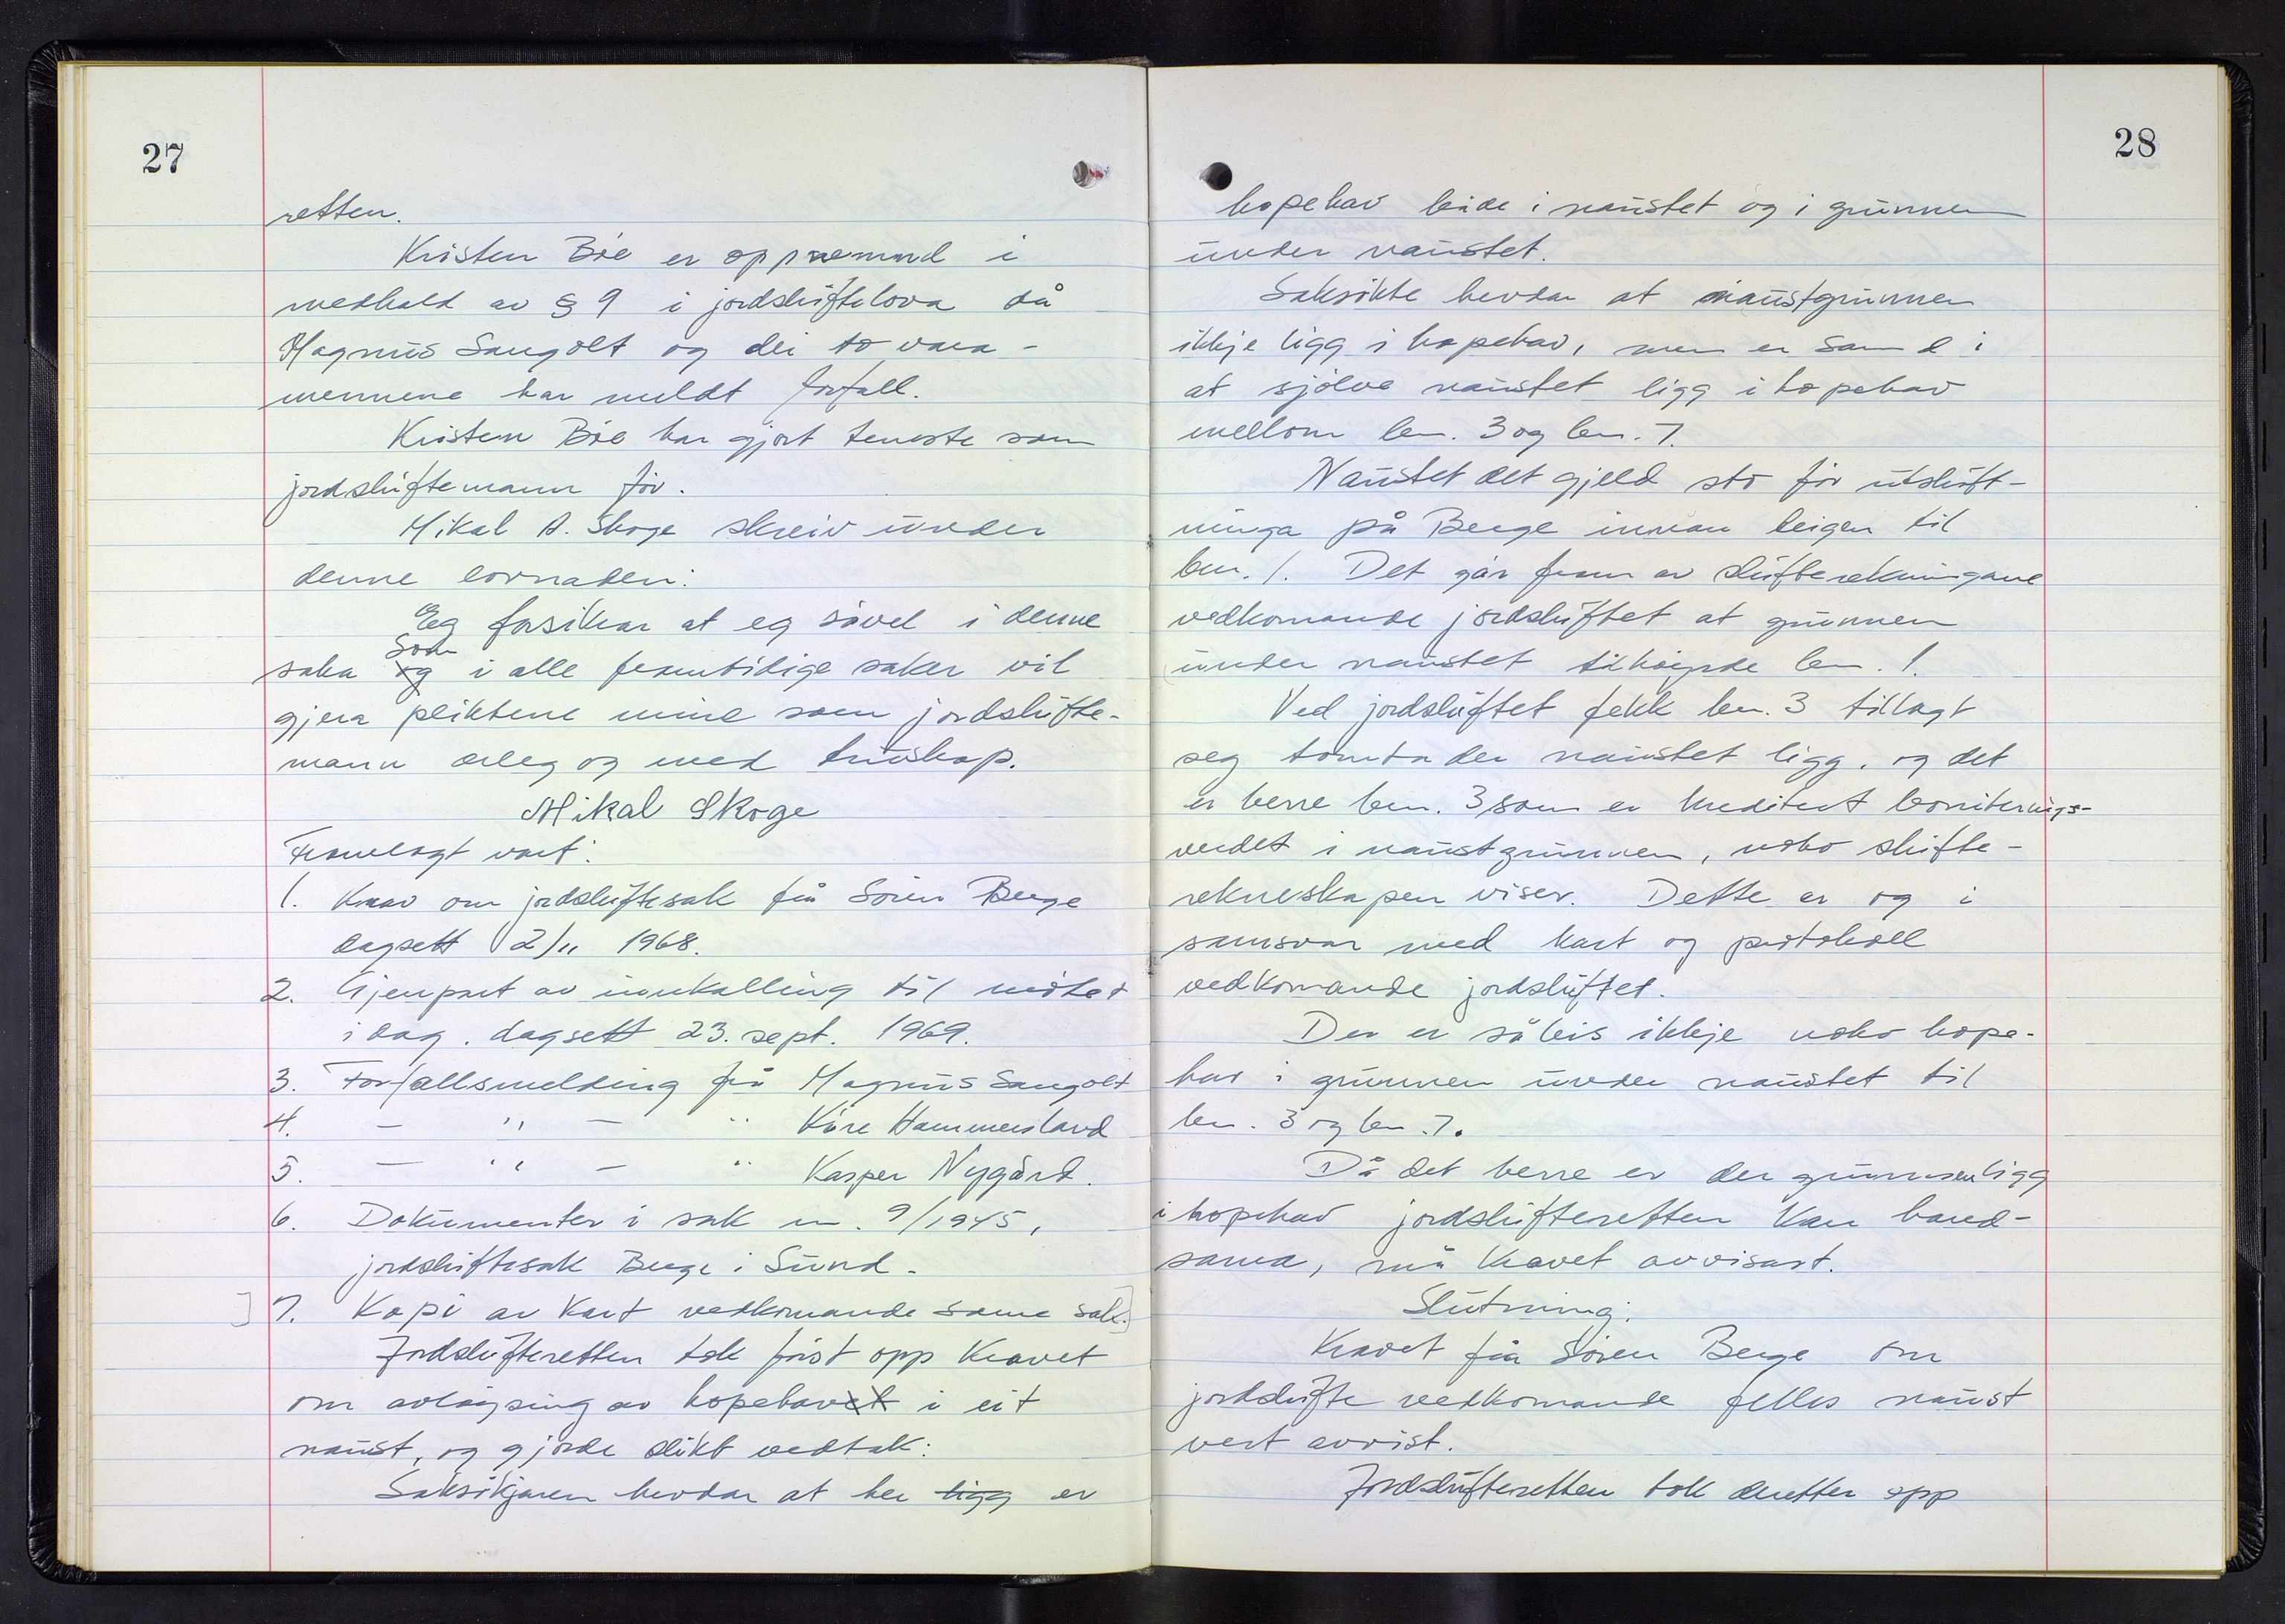 27
retten.
Kristen Böe er oppnemnd i
medhald av § 9 i jordskiftelova då
Magnus Sangolt og dei to vara-
mennene har meldt forfall.
Kristen Böe har gjort teneste som
jordskiftemann för.
Mikal A. Skoge skreiv under
denne lovnaden:
Eg forsikrar at eg såvel i denne
som
saka og i alle framtidige saker vil
gjera pliktene mine som jordskifte-
mann ærleg og med truskap.
Mikal Skoge
Framlagt vart:
1. Krav om jordskiftesak frå Sören Berge
dagsett 2/11 1968.
2. Gjenpart av innkalling til mötet
i dag, dagsett 23. sept. 1969.
3. Forfallsmelding frå Magnus Sangolt
4. — " — " Kåre Hammersland
5. — " — " Kasper Nygård.
6. Dokumenter i sak nr. 9/1945,
jordskiftesak Berge i Sund.
] 7. Kopi av kart vedkomande same sak.]
Jordskifteretten tok först opp kravet
om avlöysing av hopehavet i eit
naust, og gjorde slikt vedtak:
Saksökjaren hevdar at her ligg er
28
hopehav både i naustet og i grunnen
under naustet.
Saksökte hevdar at naustgrunnen
ikkje ligg i hopehav, men er samd i
at sjölve naustet ligg i hopehav
mellom bnr. 3 og bnr. 7.
Naustet det gjeld sto för utskift-
ninga på Berge innan teigen til
bnr. 1. Det går fram av skifterekningane
vedkomande jordskiftet at grunnen
under naustet tilhöyrde bnr. 1.
Ved jordskiftet fekk bnr. 3 tillagt
seg tomta der naustet ligg, og det
er berre bnr. 3 som er kreditert boniterings-
verdet i naustgrunnen, noko skifte-
rekneskapen viser. Dette er og i
samsvar med kart og protokoll
vedkomande jordskiftet.
Der er såleis ikkje noko hope-
hav i grunnen under naustet til
bnr. 3 og bnr. 7.
Då det berre er der grunnen ligg
i hopehav jordskifteretten kan hand-
sama, må kravet avvisast.
Slutning:
Kravet frå Sören Berge om
jordskifte vedkomande felles naust
vert avvist.
Jordskifteretten tok deretter opp